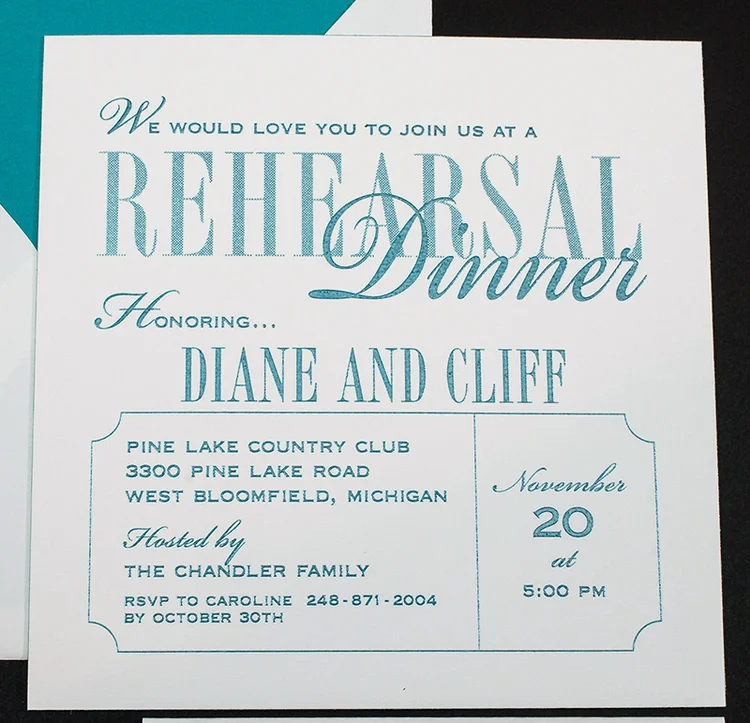 WE WOULD LOVE YOU TO JOIN US AT A
REHEARSAL
Dinner
HONORING...
DIANE AND CLIFF
PINE LAKE COUNTRY CLUB
3300 PINE LAKE ROAD
WEST BLOOMFIELD, MICHIGAN
Hosted by
THE CHANDLER FAMILY
RSVP TO CAROLINE 248-871-2004
BY OCTOBER 30TH
November
20
at
5:00 PM